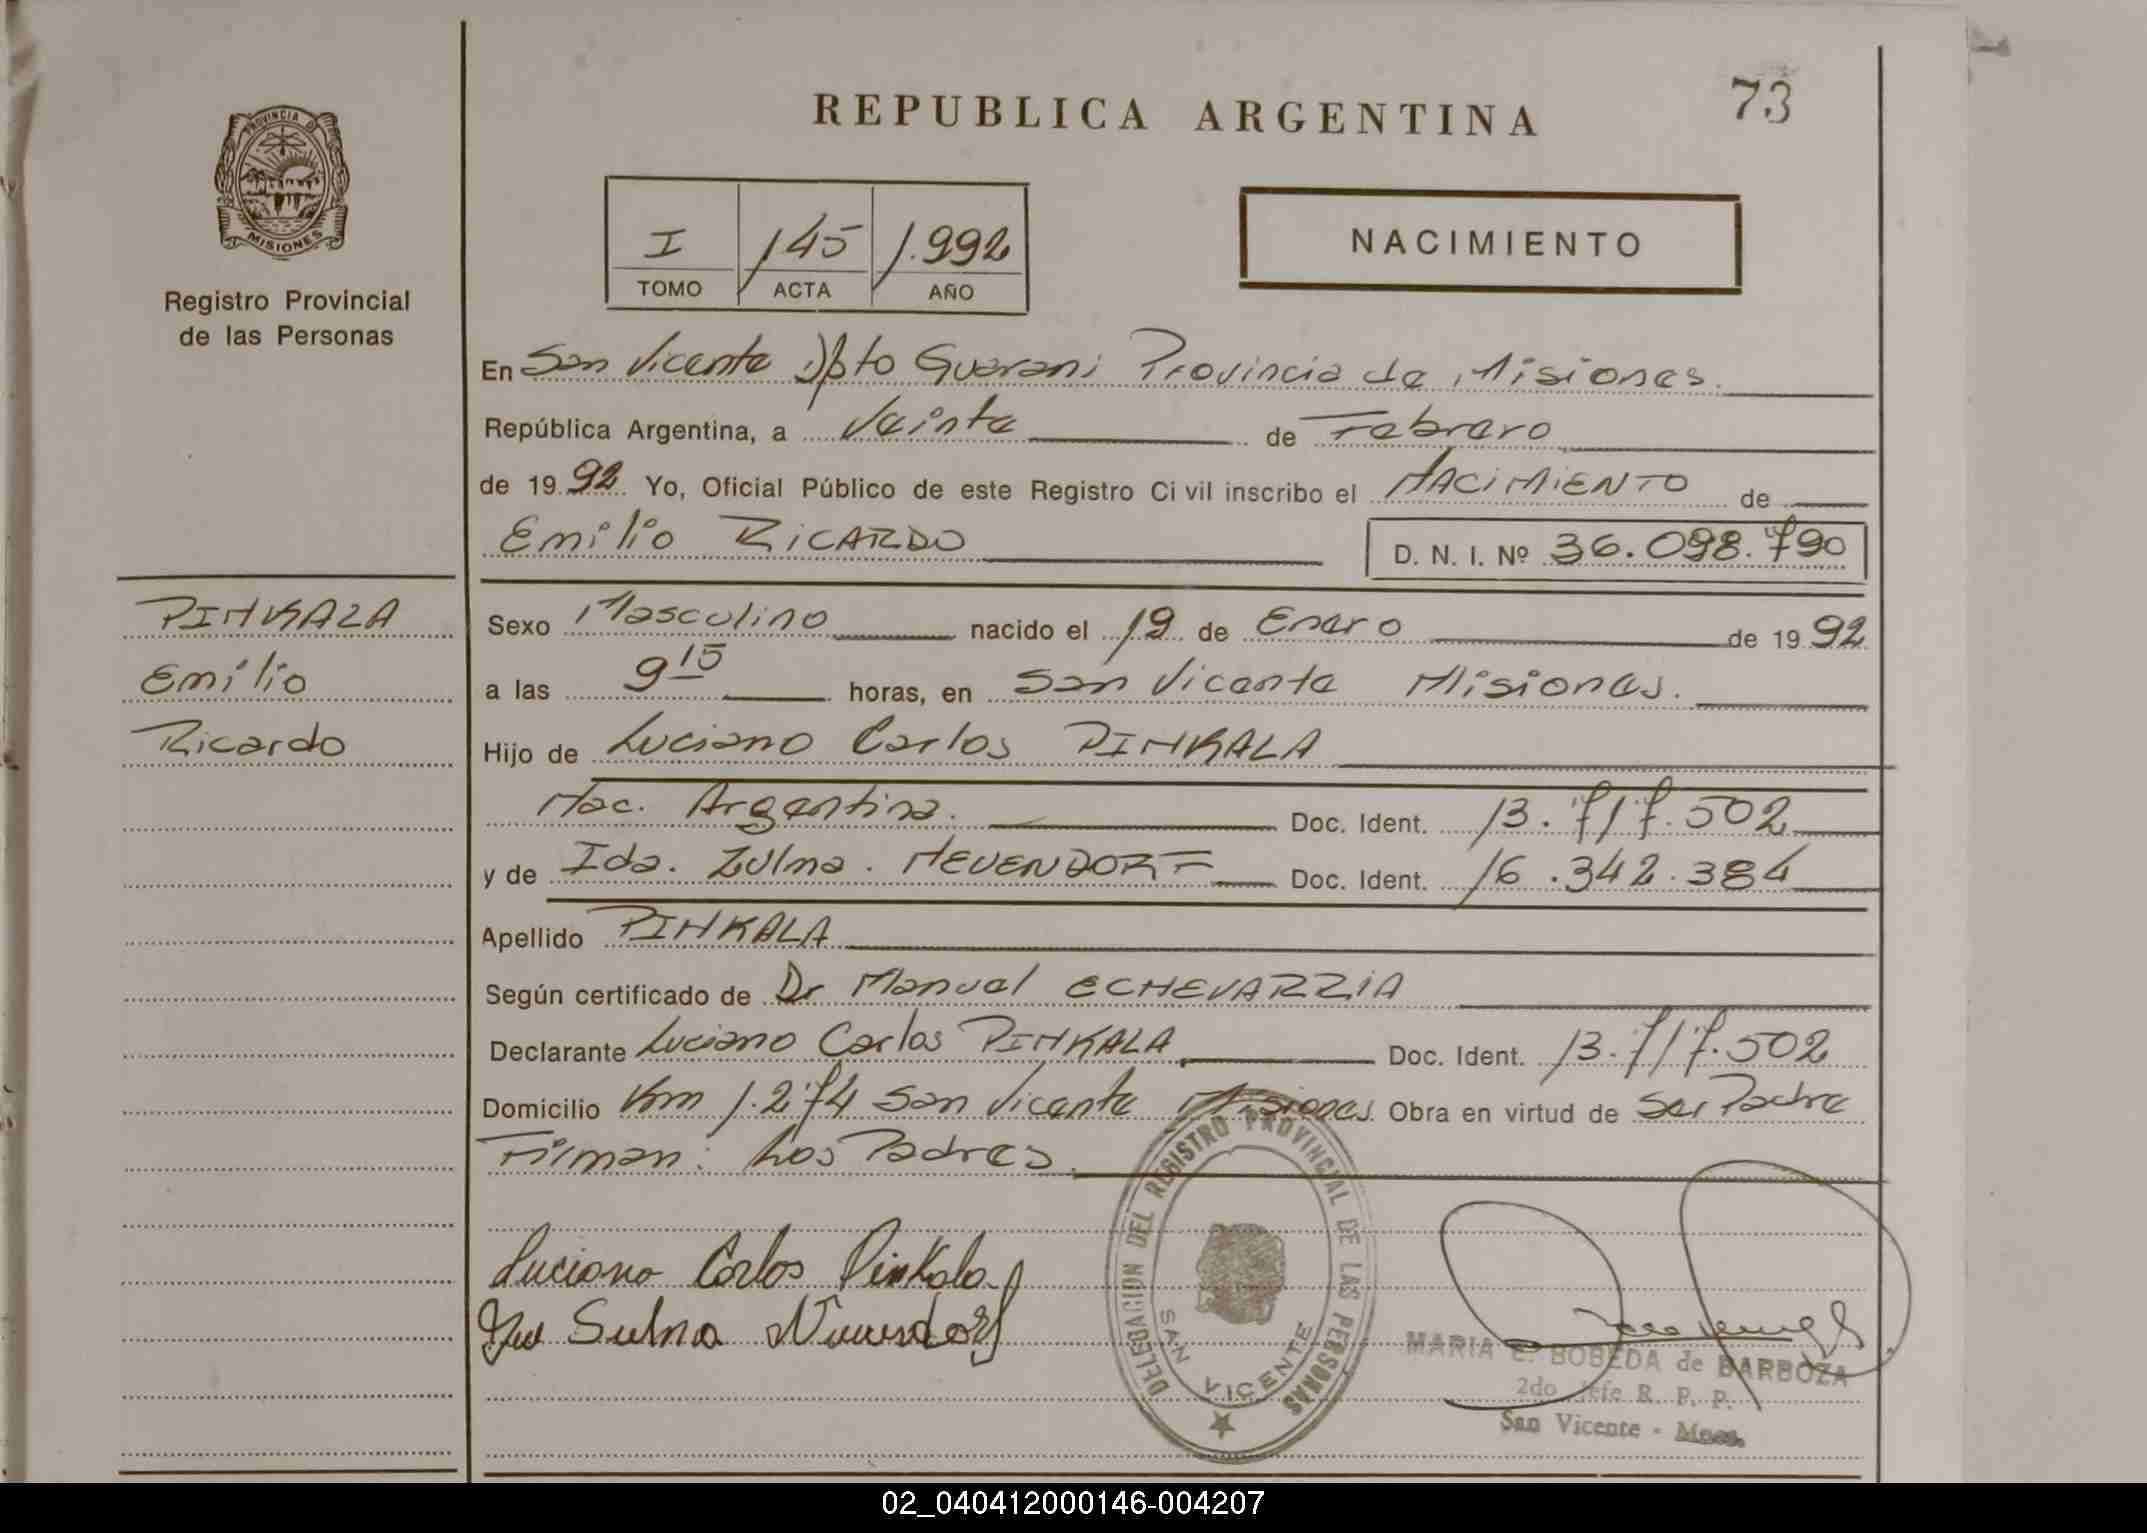 73
REPUBLICA ARGENTINA
PROVINCIA DE
MISIONES
Registro Provincial
de las Personas
I 145 1.992
TOMO ACTA AÑO
NACIMIENTO
En San Vicente Dpto Guarani Provincia de Misiones.
República Argentina, a Veinte de Febrero
de 1992 Yo, Oficial Público de este Registro Civil inscribo el NACIMIENTO de
Emilio RICARDO D. N. I. Nº 36.098.790
PINKALA
Emilio
Ricardo
Sexo Masculino nacido el 19 de Enero de 1992
a las 9 15 horas, en San Vicente Misiones.
Hijo de Luciano Carlos PINKALA
Nac. Argentina. Doc. Ident. 13.717.502
y de Ida. Zulma. NEUENDORF Doc. Ident. 16.342.384
Apellido PINKALA
Según certificado de Dr Manuel ECHEVARRIA
Declarante Luciano Carlos PINKALA Doc. Ident. 13.717.502
Domicilio Km 1.274 San Vicente Misiones. Obra en virtud de Ser Padre
Firman: Los Padres.
Luciano Carlos Pinkala
Sulma
DELEGACION DEL REGISTRO PROVINCIAL DE LAS PERSONAS
SAN VICENTE
MARIA E. BOBEDA de BARBOZA
2do Jefe R. P. P.
San Vicente - Mnes.
02_040412000146-004207